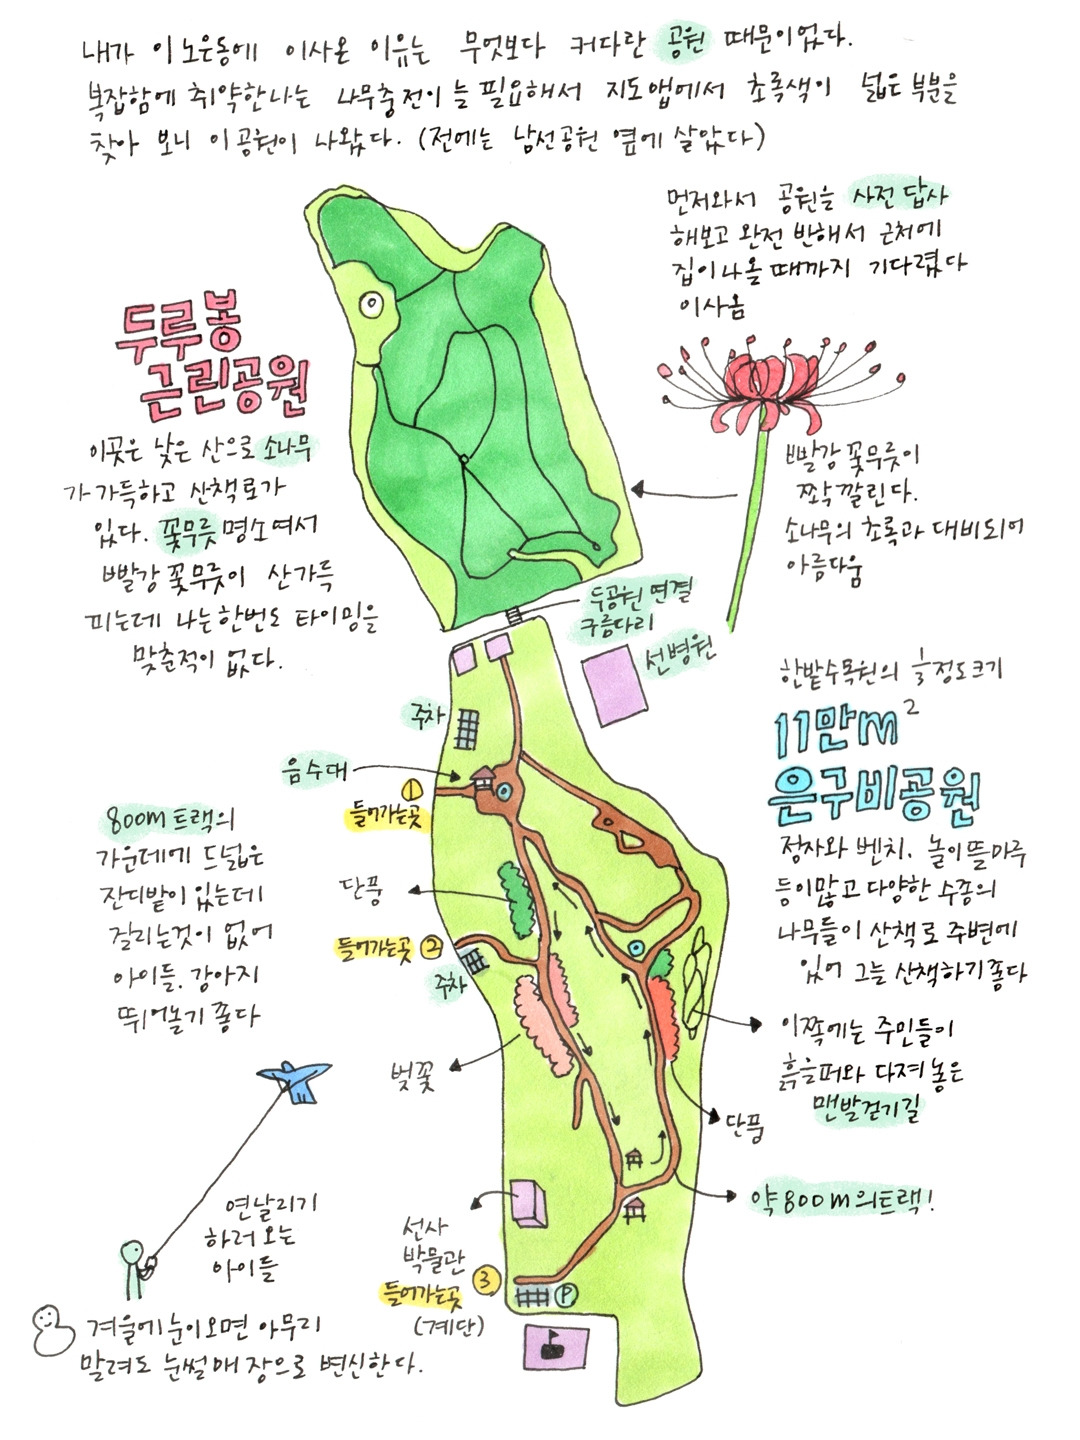 내가 이 노은동에 이사온 이유는 무엇보다 커다란 공원 때문이었다.
복잡함에 취약한나는 나무충전이 늘 필요해서 지도앱에서 초록색이 넓은 부분을
찾아 보니 이 공원이 나왔다. (전에는 남선공원 옆에 살았다)
먼저와서 공원을 사전 답사
해보고 완전 반해서 근처에
집이 나올 때까지 기다렸다
이사옴
두루봉
근린공원
이곳은 낮은 산으로 소나무
가 가득하고 산책로가
있다. 꽃무릇 명소여서
빨강 꽃무릇이 산가득
피는데 나는 한번도 타이밍을
맞춘적이 없다.
빨강 꽃무릇이
쫘악 깔린다.
소나무의 초록과 대비되어
아름다움
두공원 연결
구름다리
선병원
한밭수목원의 정도크기
11만m²
은구비공원
정자와 벤치, 놀이뜰마루
등이많고 다양한 수종의
나무들이 산책로 주변에
있어 그늘 산책하기 좋다
주차
음수대
1
들어가는곳
800m 트랙의
가운데에 드넓은
잔디밭이 있는데
걸리는것이 없어
아이들, 강아지
뛰어놀기 좋다
단풍
들어가는곳 2
주차
벚꽃
이쪽에는 주민들이
흙을퍼와 다져 놓은
맨발걷기길
단풍
약 800m의트랙!
연날리기
하러 오는
아이들
선사
박물관
들어가는곳 3
(계단)
P
겨울에 눈이오면 아무리
말려도 눈썰매장으로 변신한다.